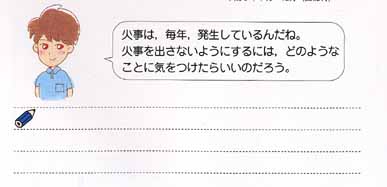 火事は，毎年，発生しているんだね。
火事を出さないようにするには，どのような
ことに気をつけたらいいのだろう。